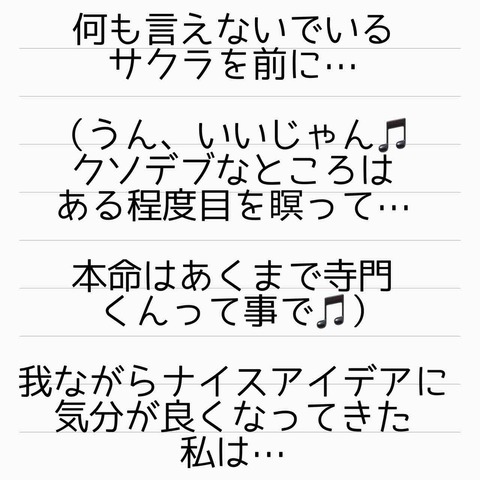 何も言えないでいる
サクラを前に…
（うん、いいじゃん🎵
クソデブなところは
ある程度目を瞑って…
本命はあくまで寺門
くんって事で🎵）
我ながらナイスアイデアに
気分が良くなってきた
私は…